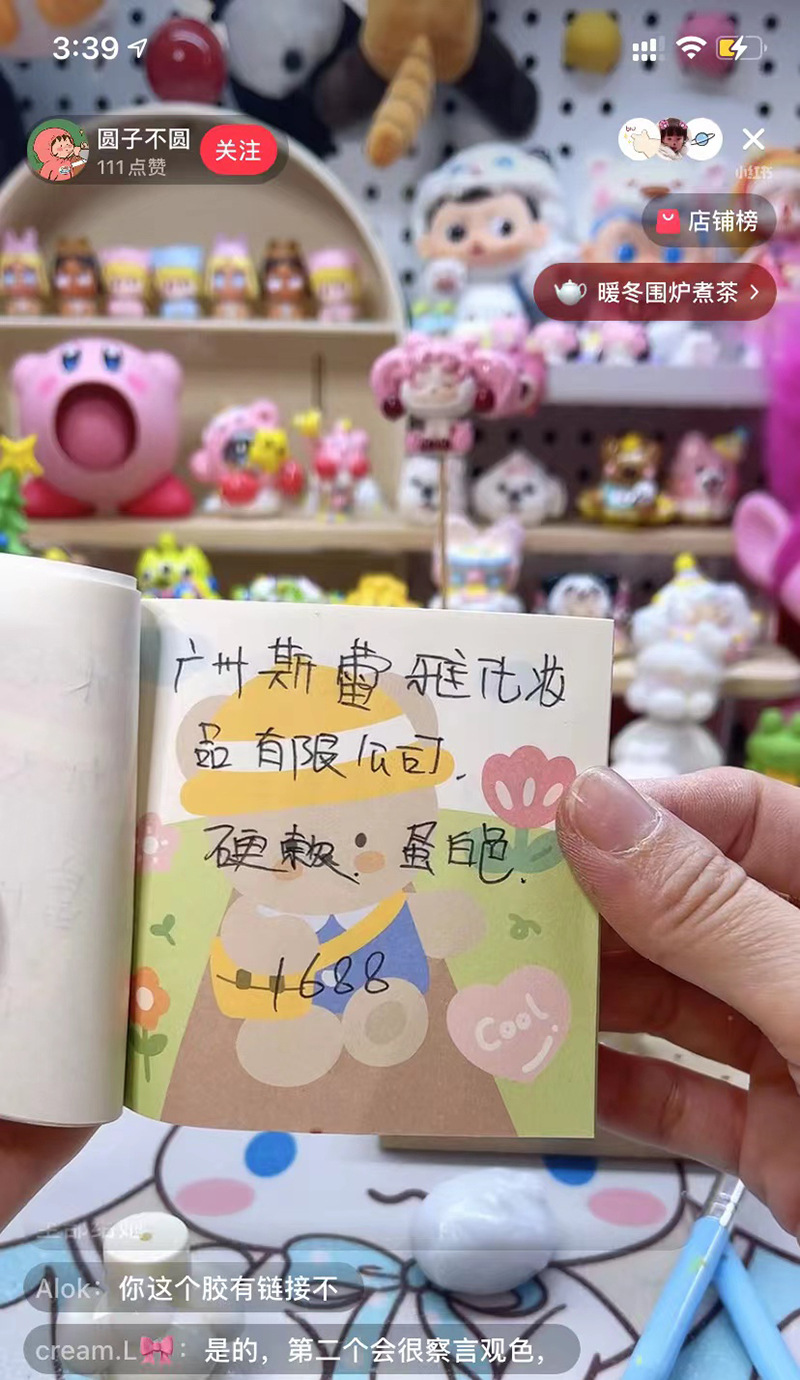 3:39
圆子不圆
111点赞
关注
小红书
店铺榜
暖冬围炉煮茶
广州斯蕾雅化妆
品有限公司.
硬款. 蛋白色.
1688
Cool
Alok：你这个胶有链接不
cream.L🎀：是的，第二个会很察言观色，